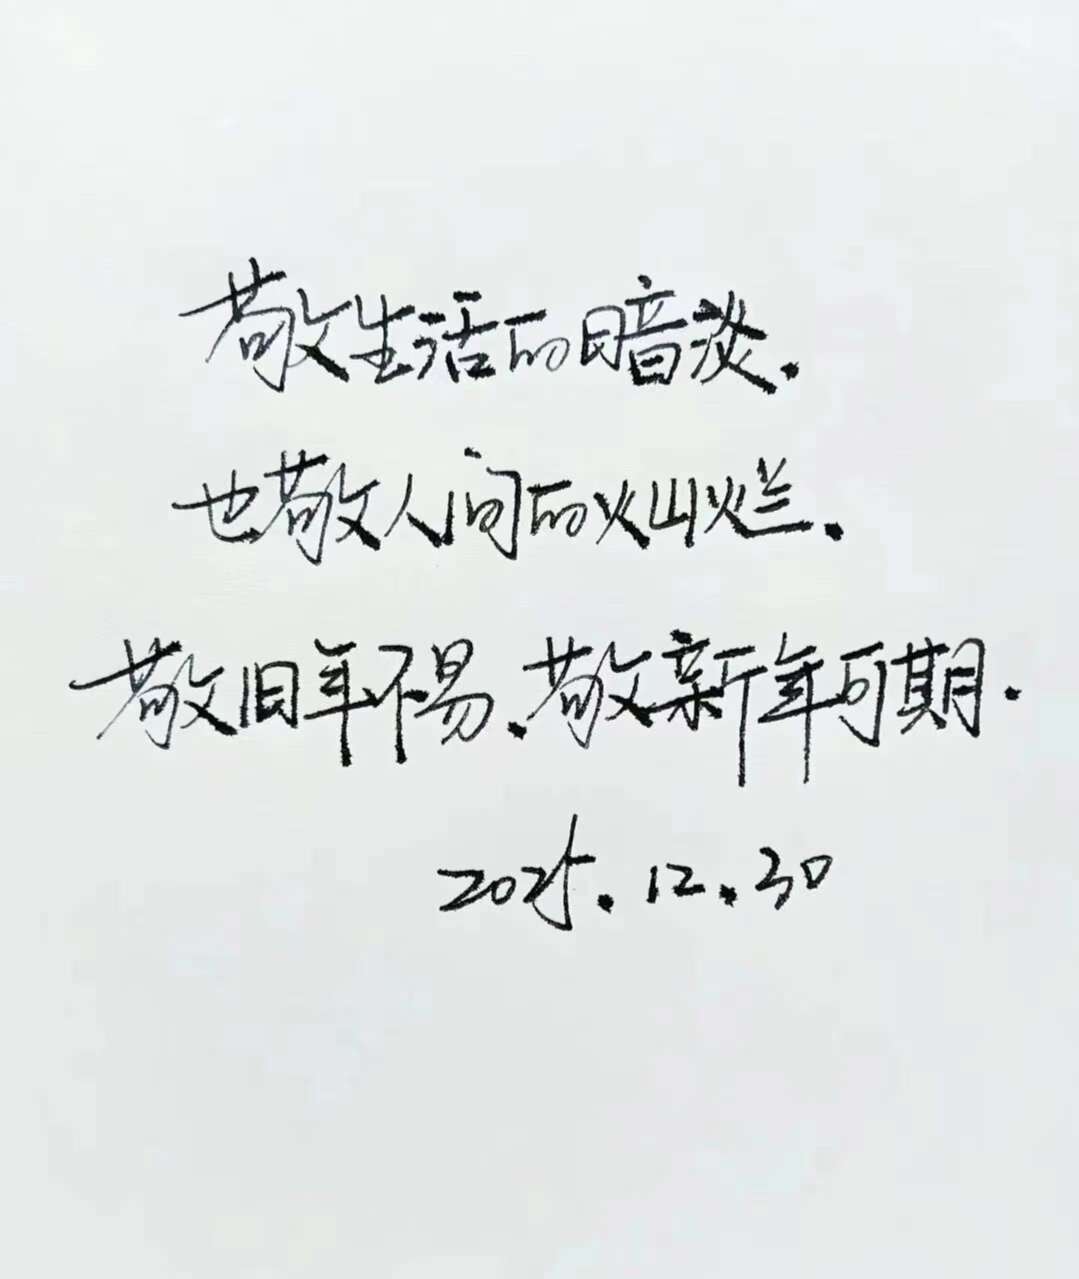 敬生活的暗淡.
也敬人间的灿烂.
敬旧年不易.敬新年可期.
2025.12.30